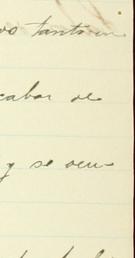 os tanto en
acabar de
y se ocu-